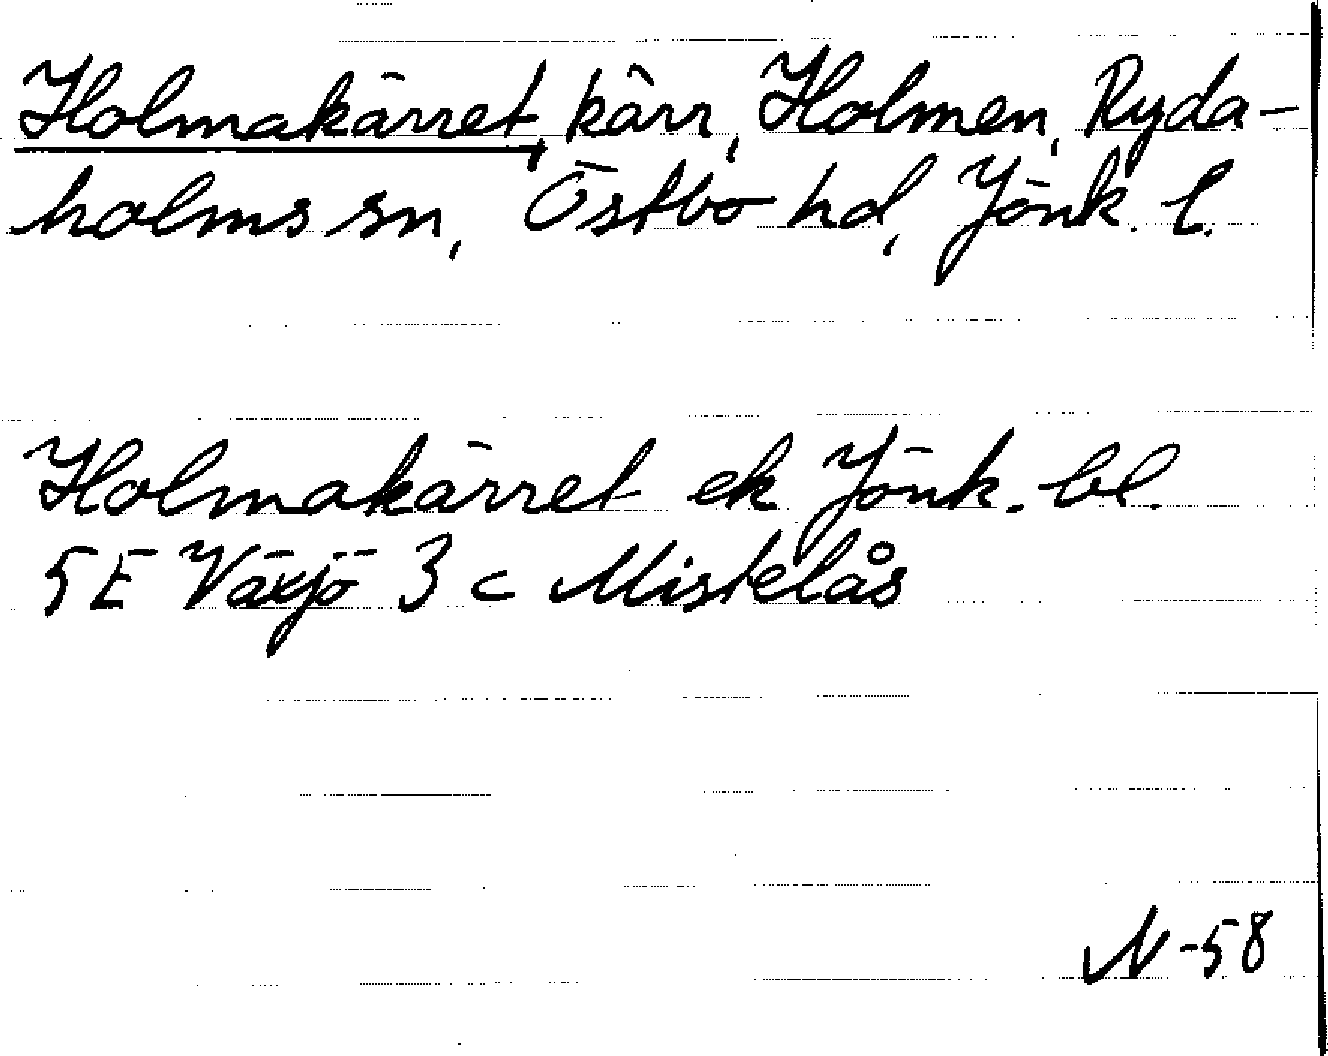 Holmakärret, kärr, Holmen, Ryda-
holms sn, Östbo hd, Jönk. l.
Holmakärret ek Jönk. bl.
5E Växjö 3 c Mistelås
N-58